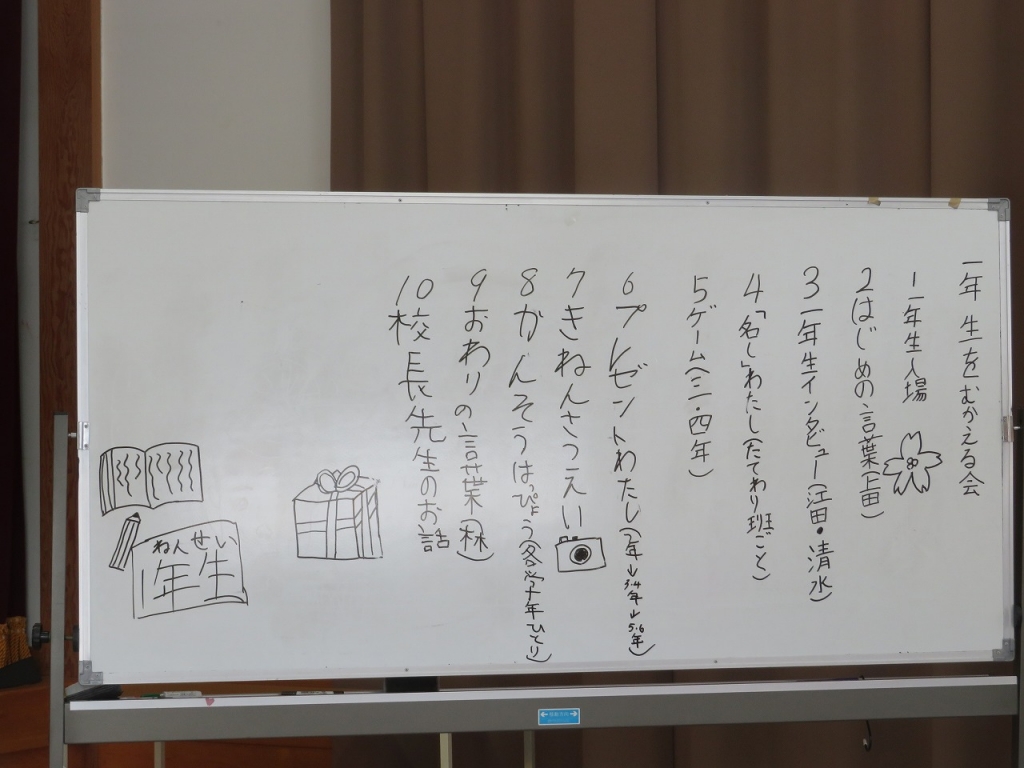 一年生をむかえる会
1 一年生入場
2 はじめの言葉(上田)
3 一年生インタビュー(江田・清水)
4 「名し」わたし(たてわり班ごと)
5 ゲーム(三・四年)
6 プレゼントわたし(2年→3.4年→5.6年)
7 きねんさつえい
8 かんそうはっぴょう(各学年ひとり)
9 おわりの言葉(林)
10 校長先生のお話
ねんせい
1年生